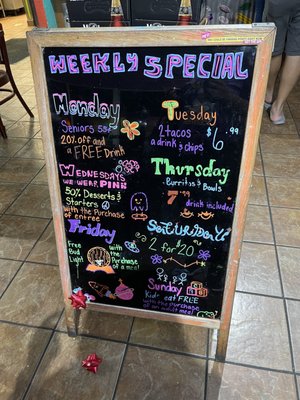 WEEKLY SPECIAL
Monday
Seniors 55+
20% off and
a FREE Drink
Tuesday
2 tacos
a drink & chips
$6.99
WEDNESDAYS
WE WEAR PINK
50% Desserts &
Starters
with the Purchase
of entree
Thursday
Burritos & Bowls
7.99
drink included
Friday
Free
Bud
Light
with the
Purchase
of a meal
Saturday
2 for $20
Sunday
Kids eat FREE
with the Purchase
of an adult meal